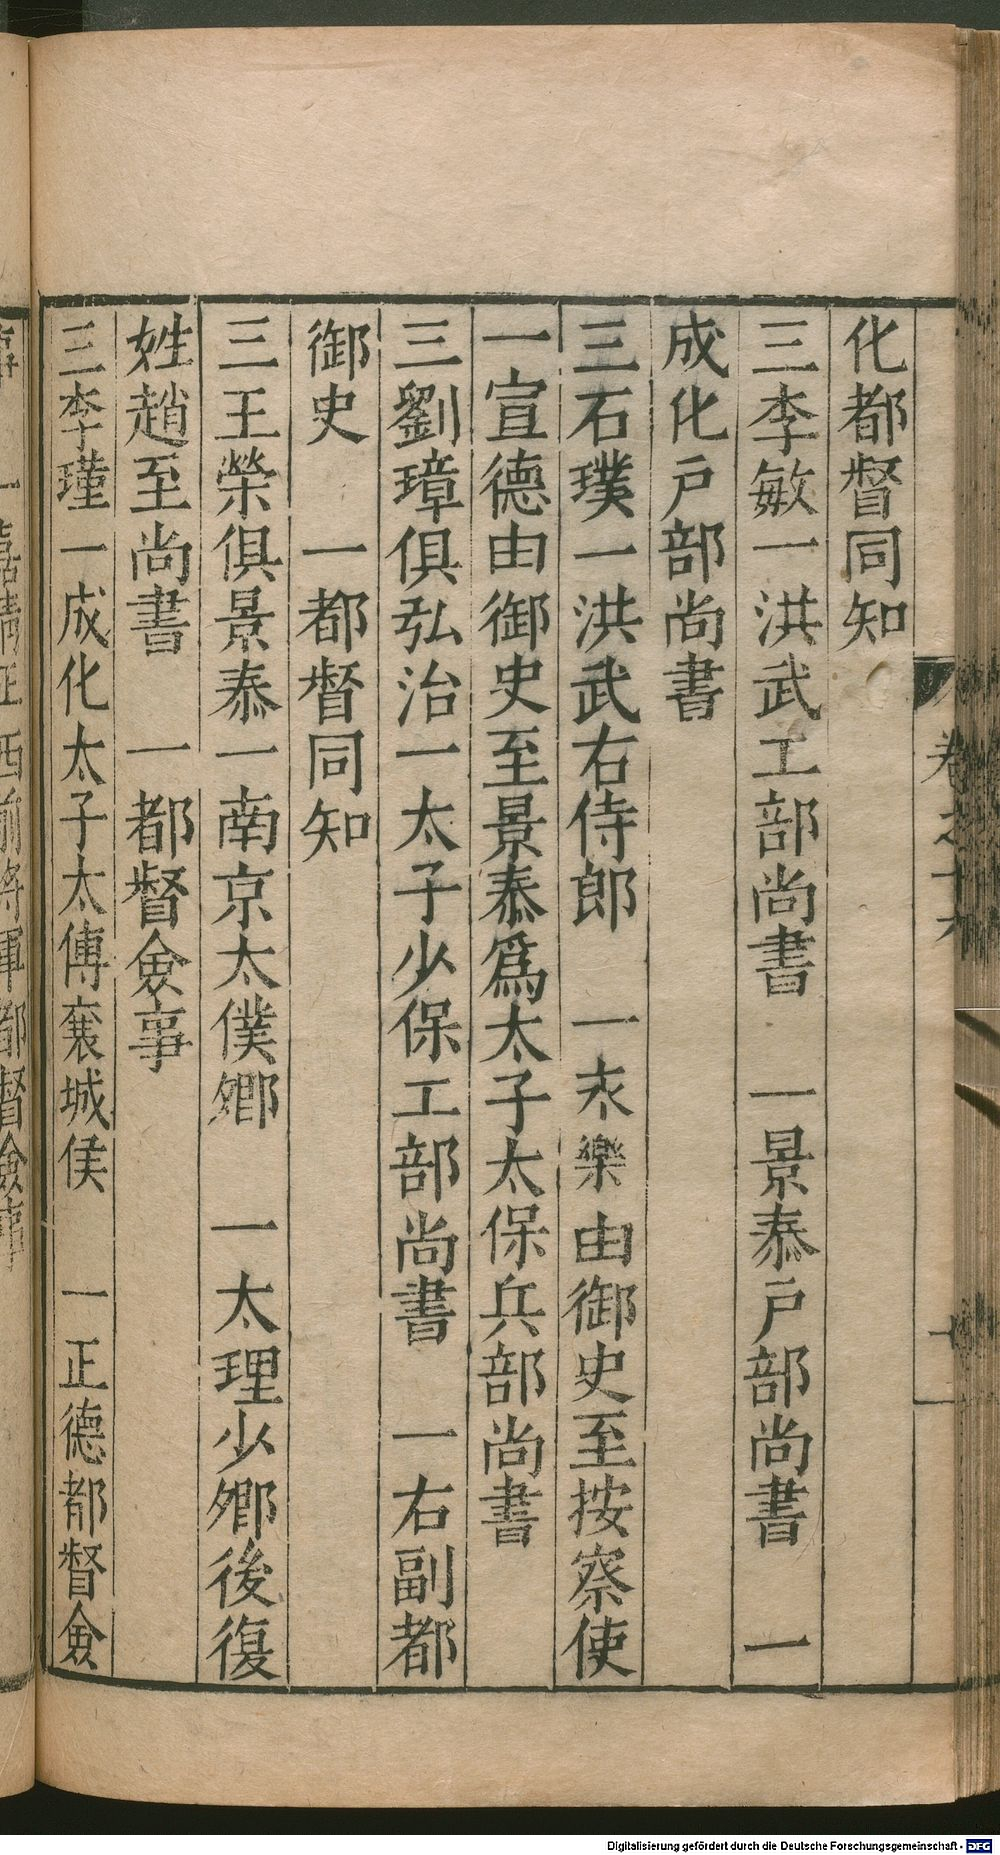 化都督同知
三李敏一洪武工部尚書　一景泰戶部尚書　一
成化戶部尚書
三石璞一洪武右侍郎　一永樂由御史至按察使
一宣德由御史至景泰爲太子太保兵部尚書
三劉璋俱弘治一太子少保工部尚書　一右副都
御史　一都督同知
三王榮俱景泰一南京太僕卿　一太理少卿後復
姓趙至尚書　一都督僉事
三李瑾一成化太子太傅襄城侯　一正德都督僉
卷之十六
西前將軍都督僉事
Digitalisierung gefördert durch die Deutsche Forschungsgemeinschaft - DFG